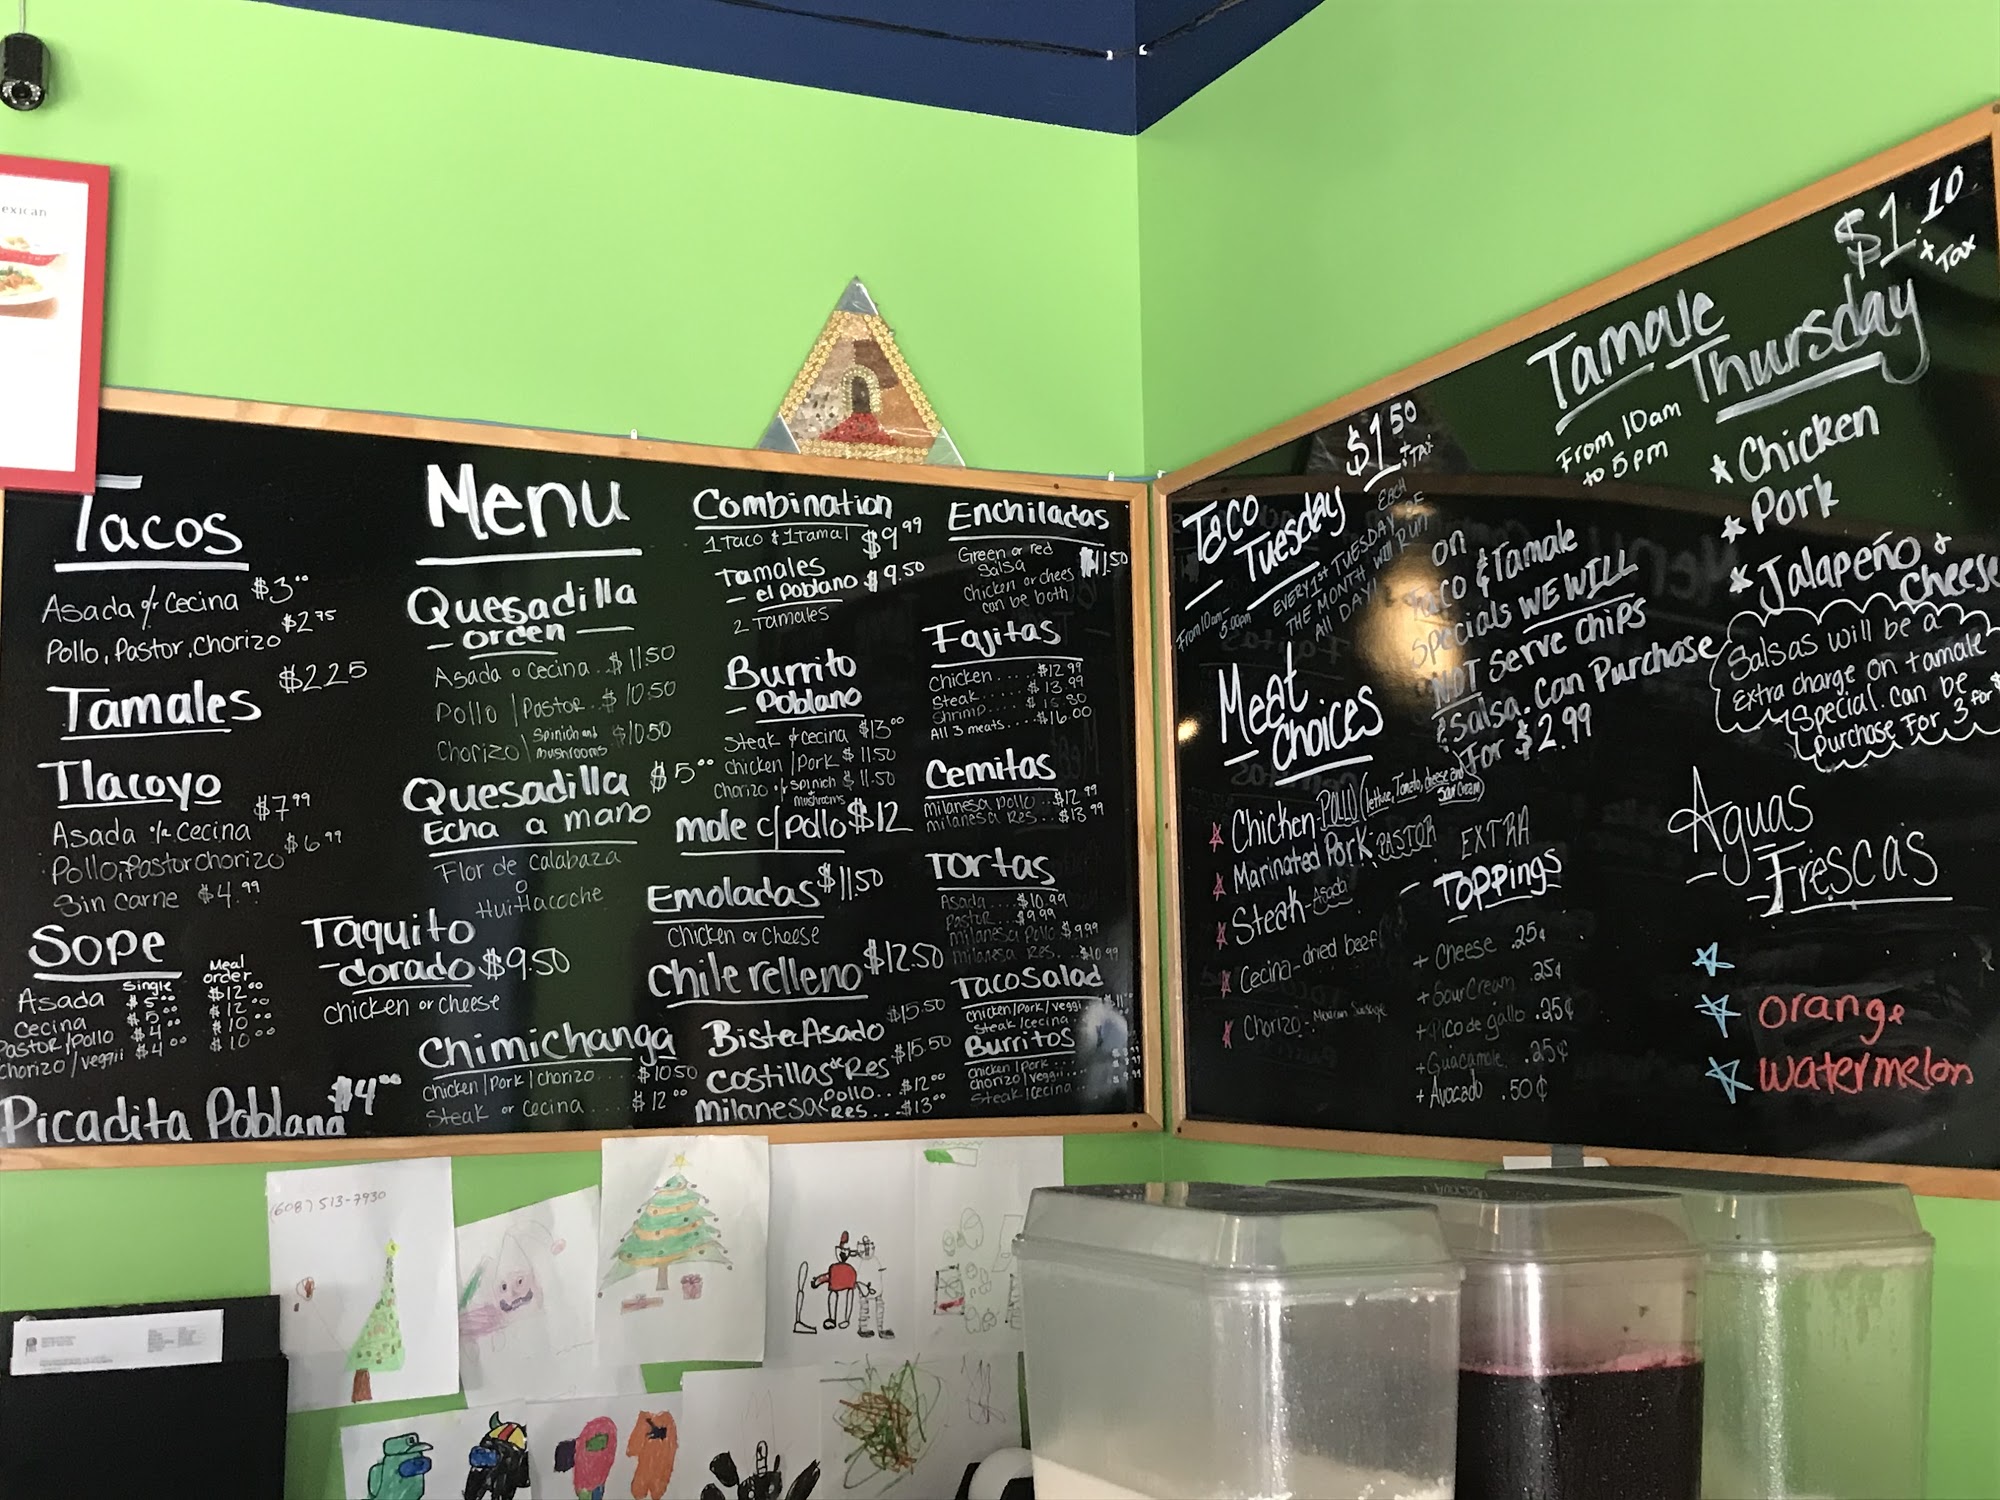 exican
Tacos
Asada o/r Cecina $3.00
Pollo, Pastor, Chorizo $2.75
Tamales $2.25
Tlacoyo
Asada o/r Cecina $7.99
Pollo, Pastor chorizo $6.99
Sin Carne $4.99
Sope
Single
Meal order
Asada $5.00 $12.00
Cecina $5.00 $12.00
Pastor/Pollo $4.00 $10.00
Chorizo/veggii $4.00 $10.00
Picadita Poblana $4.00
Menu
Quesadilla
- orden -
Asada o Cecina .. $11.50
Pollo | Pastor .. $10.50
Chorizo | Spinich and mushrooms $10.50
Quesadilla $5.00
Echa a mano
Flor de calabaza
o
Huitlacoche
Taquito
- dorado $9.50
chicken or cheese
Chimichanga
chicken/pork/chorizo .... $10.50
Steak or Cecina .... $12.00
Combination
1 Taco & 1 tamal $9.99
Tamales
- el poblano $9.50
2 Tamales
Burrito
- Poblano
Steak & cecina $13.00
chicken/Pork $11.50
Chorizo & Spinich $11.50
mushrooms
Mole c/pollo $12
Emoladas $11.50
Chicken or Cheese
Chile relleno $12.50
Bistec Asado $15.50
Costillas de Res $15.50
Milanesa Pollo .. $12.00
Res ... $13.00
Enchiladas
Green or red
Salsa $11.50
Chicken or chees
can be both
Fajitas
Chicken ...... $12.99
Steak ........ $13.99
Shrimp
All 3 meats .... $16.00
Cemitas
milanesa pollo ... $12.99
milanesa Res ... $13.99
Tortas
Asada ..... $10.99
Pastor .... $9.99
milanesa pollo $9.99
milanesa Res .. $10.99
Taco Salad
chicken/Pork/veggi
Steak/cecina
Burritos
chicken/pork
chorizo/veggii
Steak/cecina
Taco
- Tuesday
$1.50
+ Tax
From 10am
5:00pm
EVERY 1st TUESDAY OF EACH
THE MONTH WILL RUN
All DAY!!
on
Taco & Tamale
Specials WE WILL
NOT Serve chips
& Salsa. Can Purchase
For $2.99
Tamale
Thursday
$1.10
+ Tax
From 10am
to 5pm
Chicken
Pork
Jalapeño &
Cheese
Salsas will be a
Extra charge on tamale
Special. Can be
Purchase For 3 for $
Meat
choices
Chicken-POLLO (lettuce, Tomato, cheese and sour cream)
Marinated Pork-PASTOR
Steak-Asada
Cecina-dried beef
Chorizo-Mexican Sausage
EXTRA
- TOPPINGS
+ Cheese .25¢
+ Sour Cream .25¢
+ Pico de gallo .25¢
+ Guacamole .25¢
+ Avocado .50¢
Aguas
- Frescas
orange
watermelon
(608) 513-7930